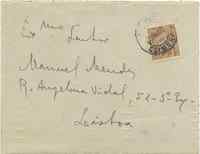 Ex mo Senhor
Manuel Mendes
R. Angelina Vidal, 52-5º Eq.
Lisboa